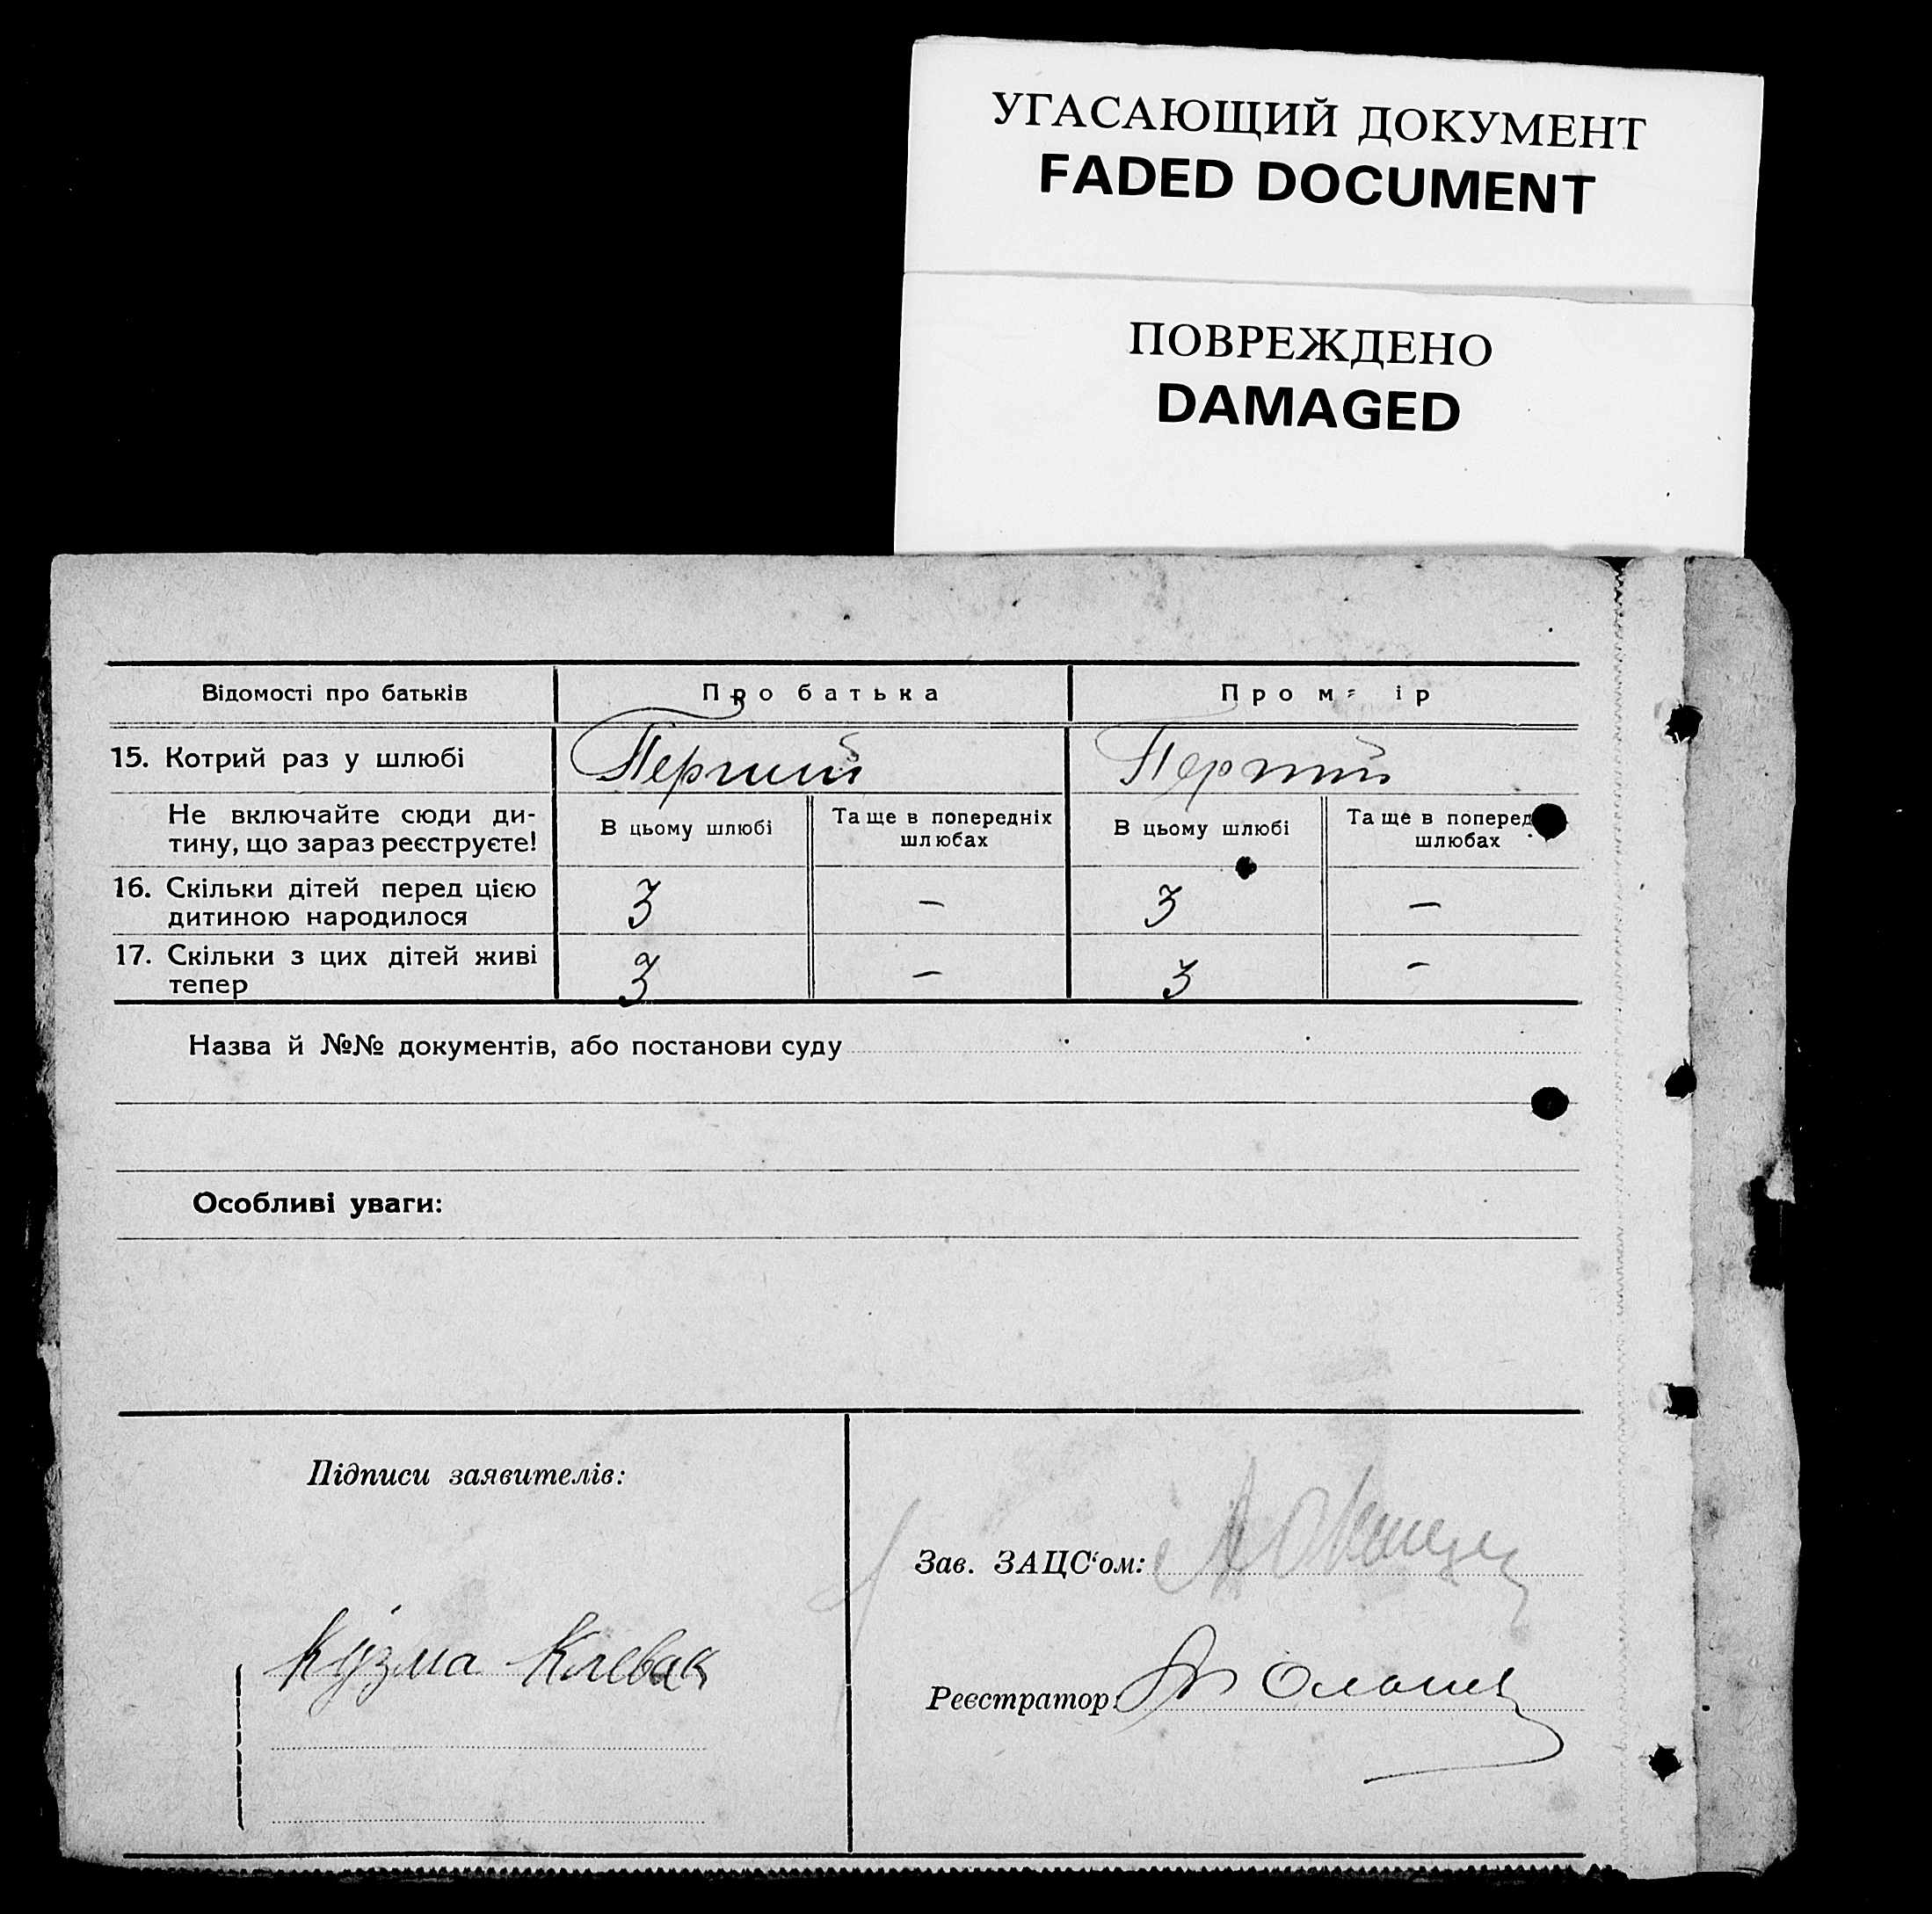 УГАСАЮЩИЙ ДОКУМЕНТ
FADED DOCUMENT
ПОВРЕЖДЕНО
DAMAGED
Відомості про батьків
Про батька
Про м ір
15. Котрий раз у шлюбі
Перший
Перший
Не включайте сюди ди-
тину, що зараз реєструєте!
В цьому шлюбі
Та ще в попередніх
шлюбах
В цьому шлюбі
Та ще в поперед
шлюбах
16. Скільки дітей перед цією
дитиною народилося
3
—
3
—
17. Скільки з цих дітей живі
тепер
3
—
3
—
Назва й №№ документів, або постанови суду
Особливі уваги:
Підписи заявителів:
Кузма
Зав. ЗАЦС‘ом:
Реєстратор: